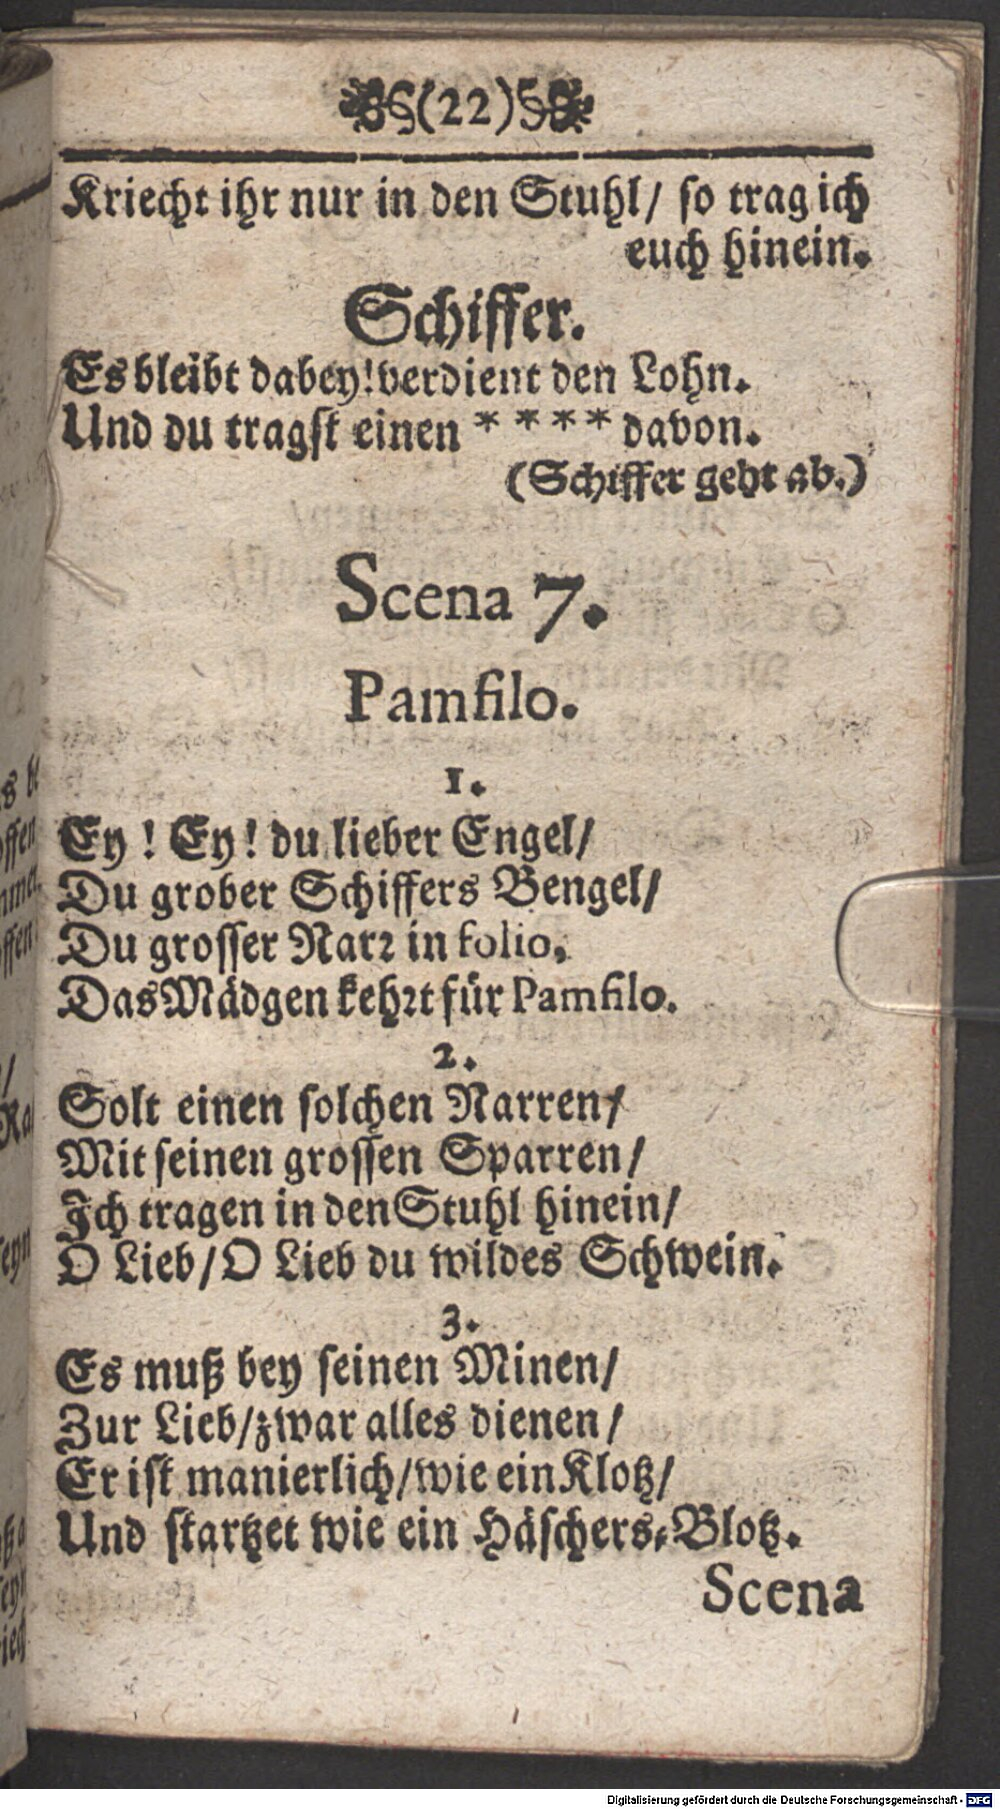 (22)
Kriecht ihr nur in den Stuhl/ so trag ich
euch hinein.
Schiffer.
Es bleibt dabey! verdient den Lohn.
Und du tragst einen * * * * davon.
(Schiffer geht ab.)
Scena 7.
Pamfilo.
1.
Ey! Ey! du lieber Engel/
Du grober Schiffers Bengel/
Du grosser Narr in folio.
Das Mädgen kehrt für Pamfilo.
2.
Solt einen solchen Narren/
Mit seinen grossen Sparren/
Ich tragen in den Stuhl hinein/
O Lieb/ O Lieb du wildes Schwein.
3.
Es muß bey seinen Minen/
Zur Lieb/ zwar alles dienen/
Er ist manierlich/ wie ein Klotz/
Und startzet wie ein Häschers-Blotz.
Scena
Digitalisierung gefördert durch die Deutsche Forschungsgemeinschaft - DFG